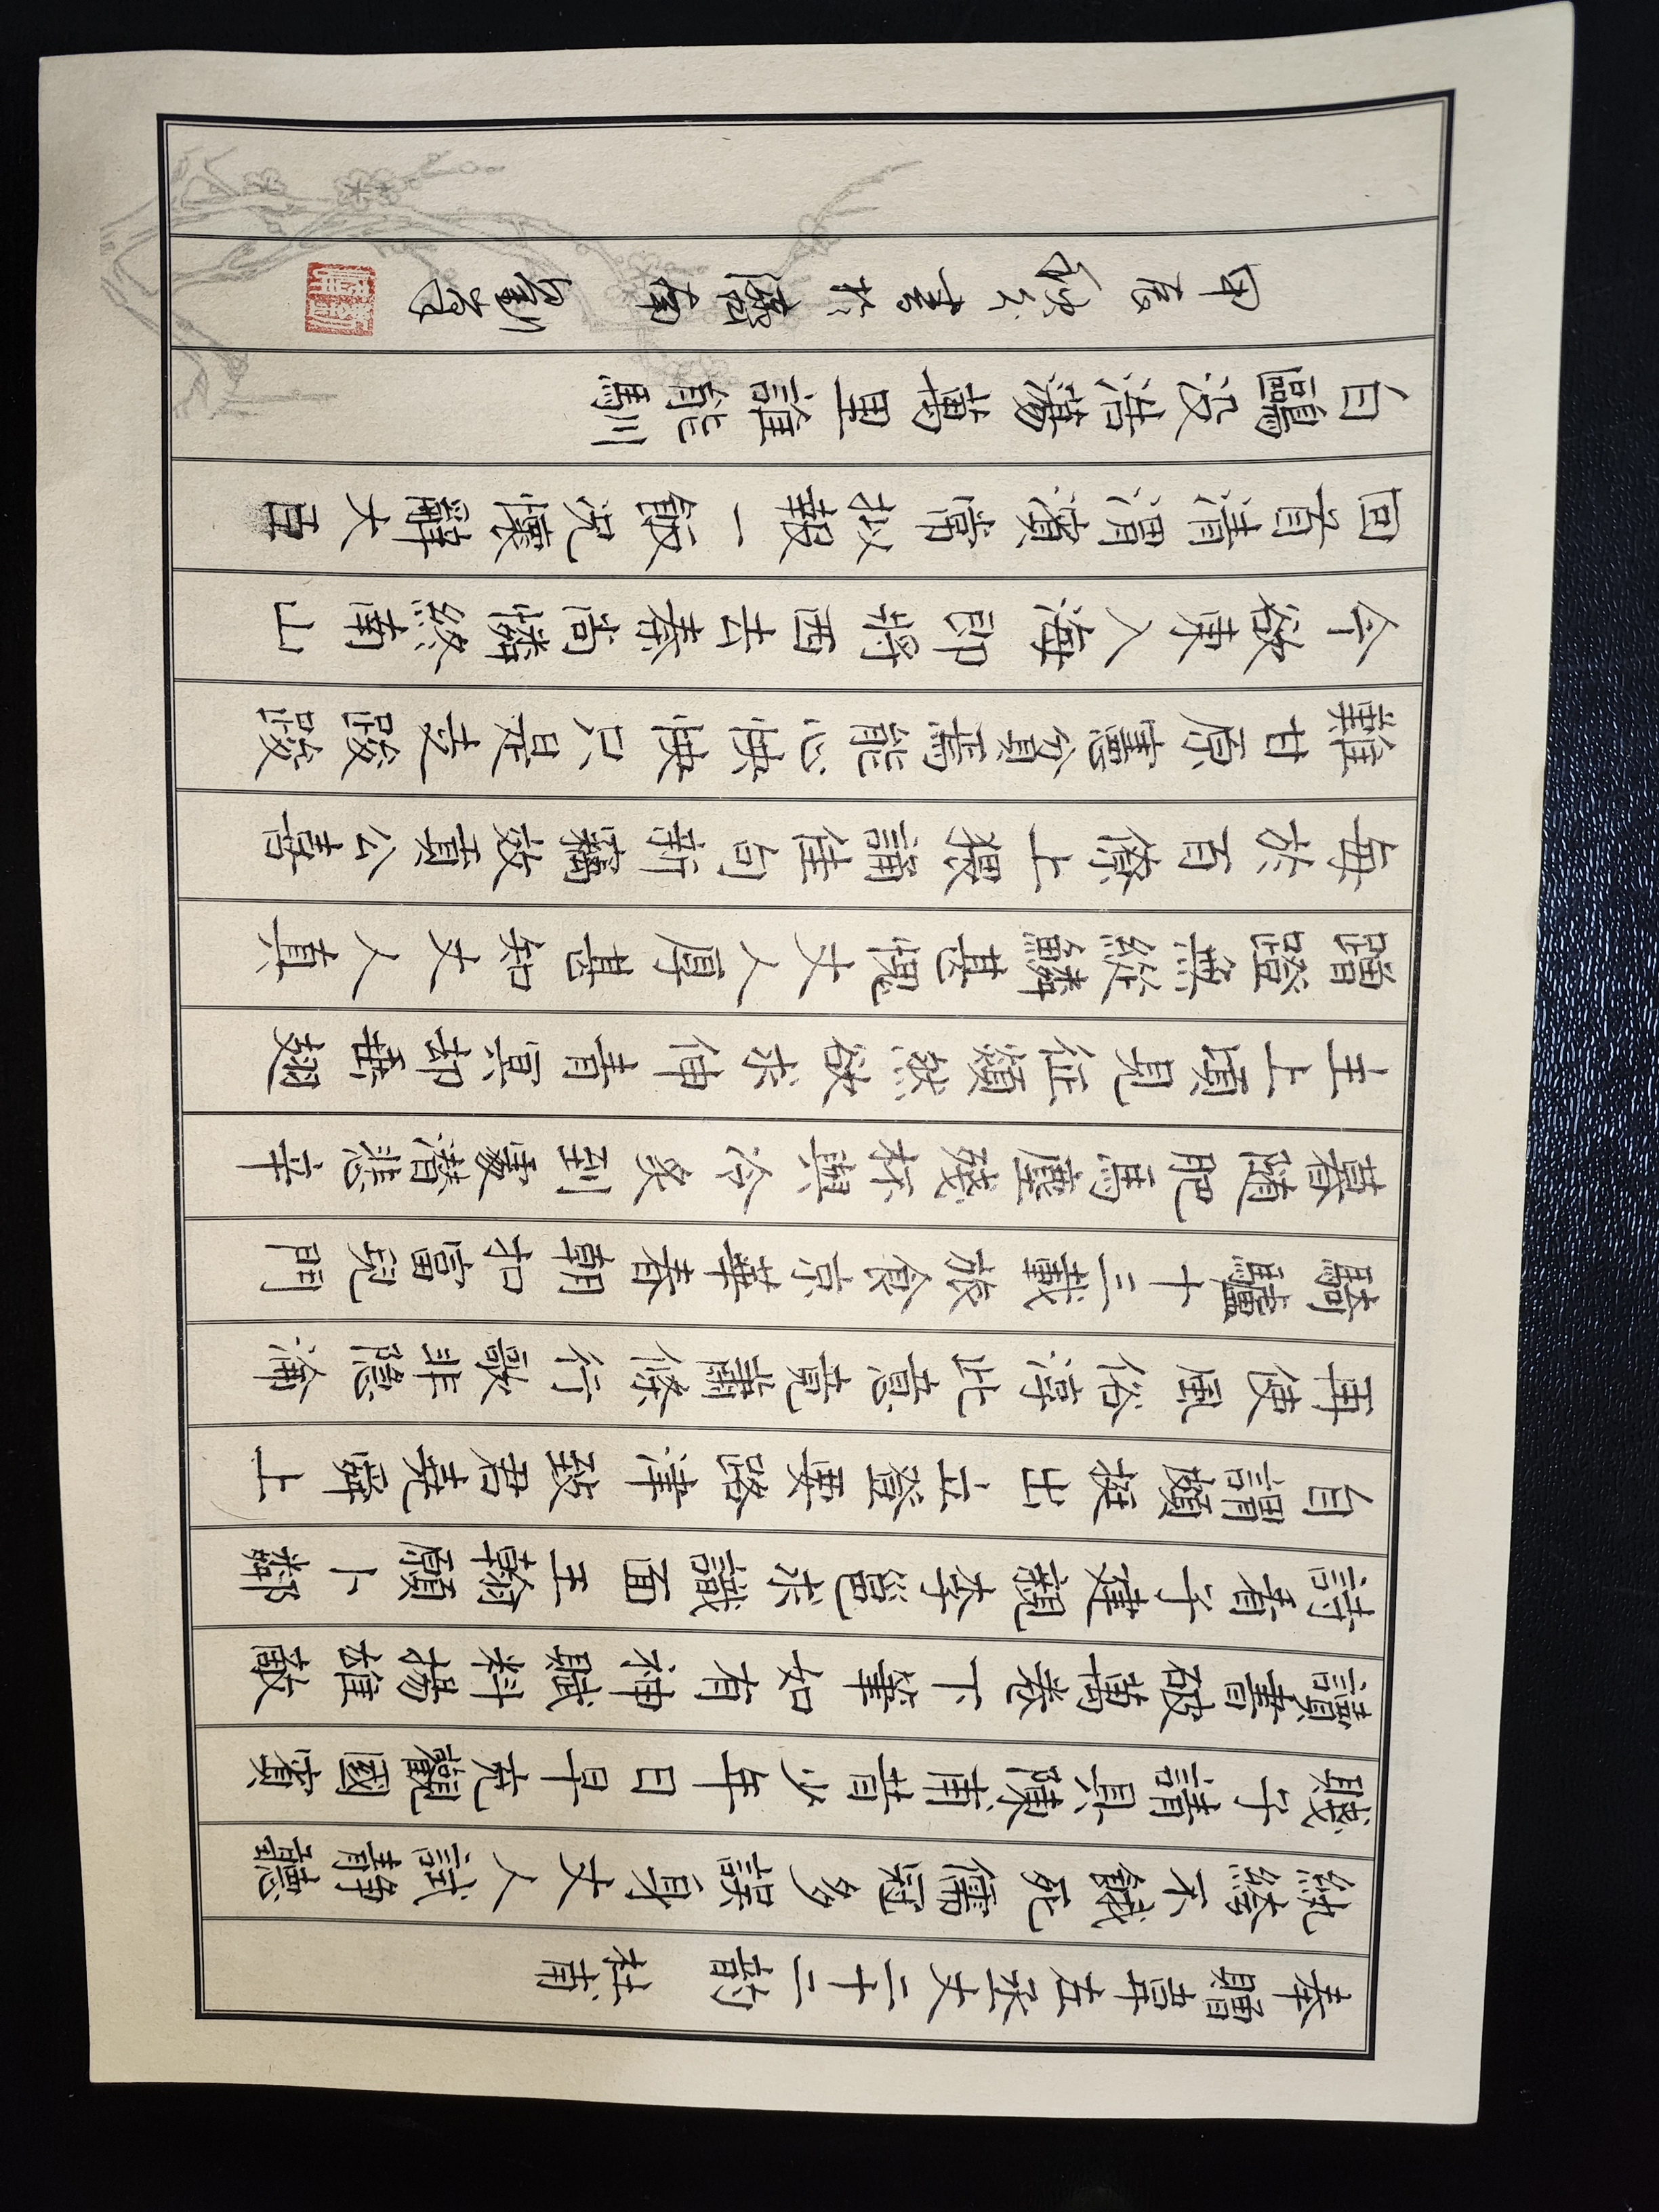 奉贈韋左丞丈二十二韵 杜甫
紈絝不餓死儒冠多誤身丈人試靜聽
賤子請具陳甫昔少年日早充觀國賓
讀書破萬卷下筆如有神賦料揚雄敵
詩看子建親李邕求識面王翰願卜鄰
自謂頗挺出立登要路津致君堯舜上
再使風俗淳此意竟蕭條行歌非隱淪
騎驢十三載旅食京華春朝扣富兒門
暮隨肥馬塵殘杯與冷炙到處潛悲辛
主上頃見征欻然欲求伸青冥却垂翅
蹭蹬無縱鱗甚愧丈人厚甚知丈人真
每於百僚上猥誦佳句新竊效貢公喜
難甘原憲貧焉能心怏怏只是走踆踆
今欲東入海即將西去秦尚憐終南山
回首清渭濱常擬報一飯況懷辭大臣
白鷗沒浩蕩萬里誰能馴
甲辰秋書於